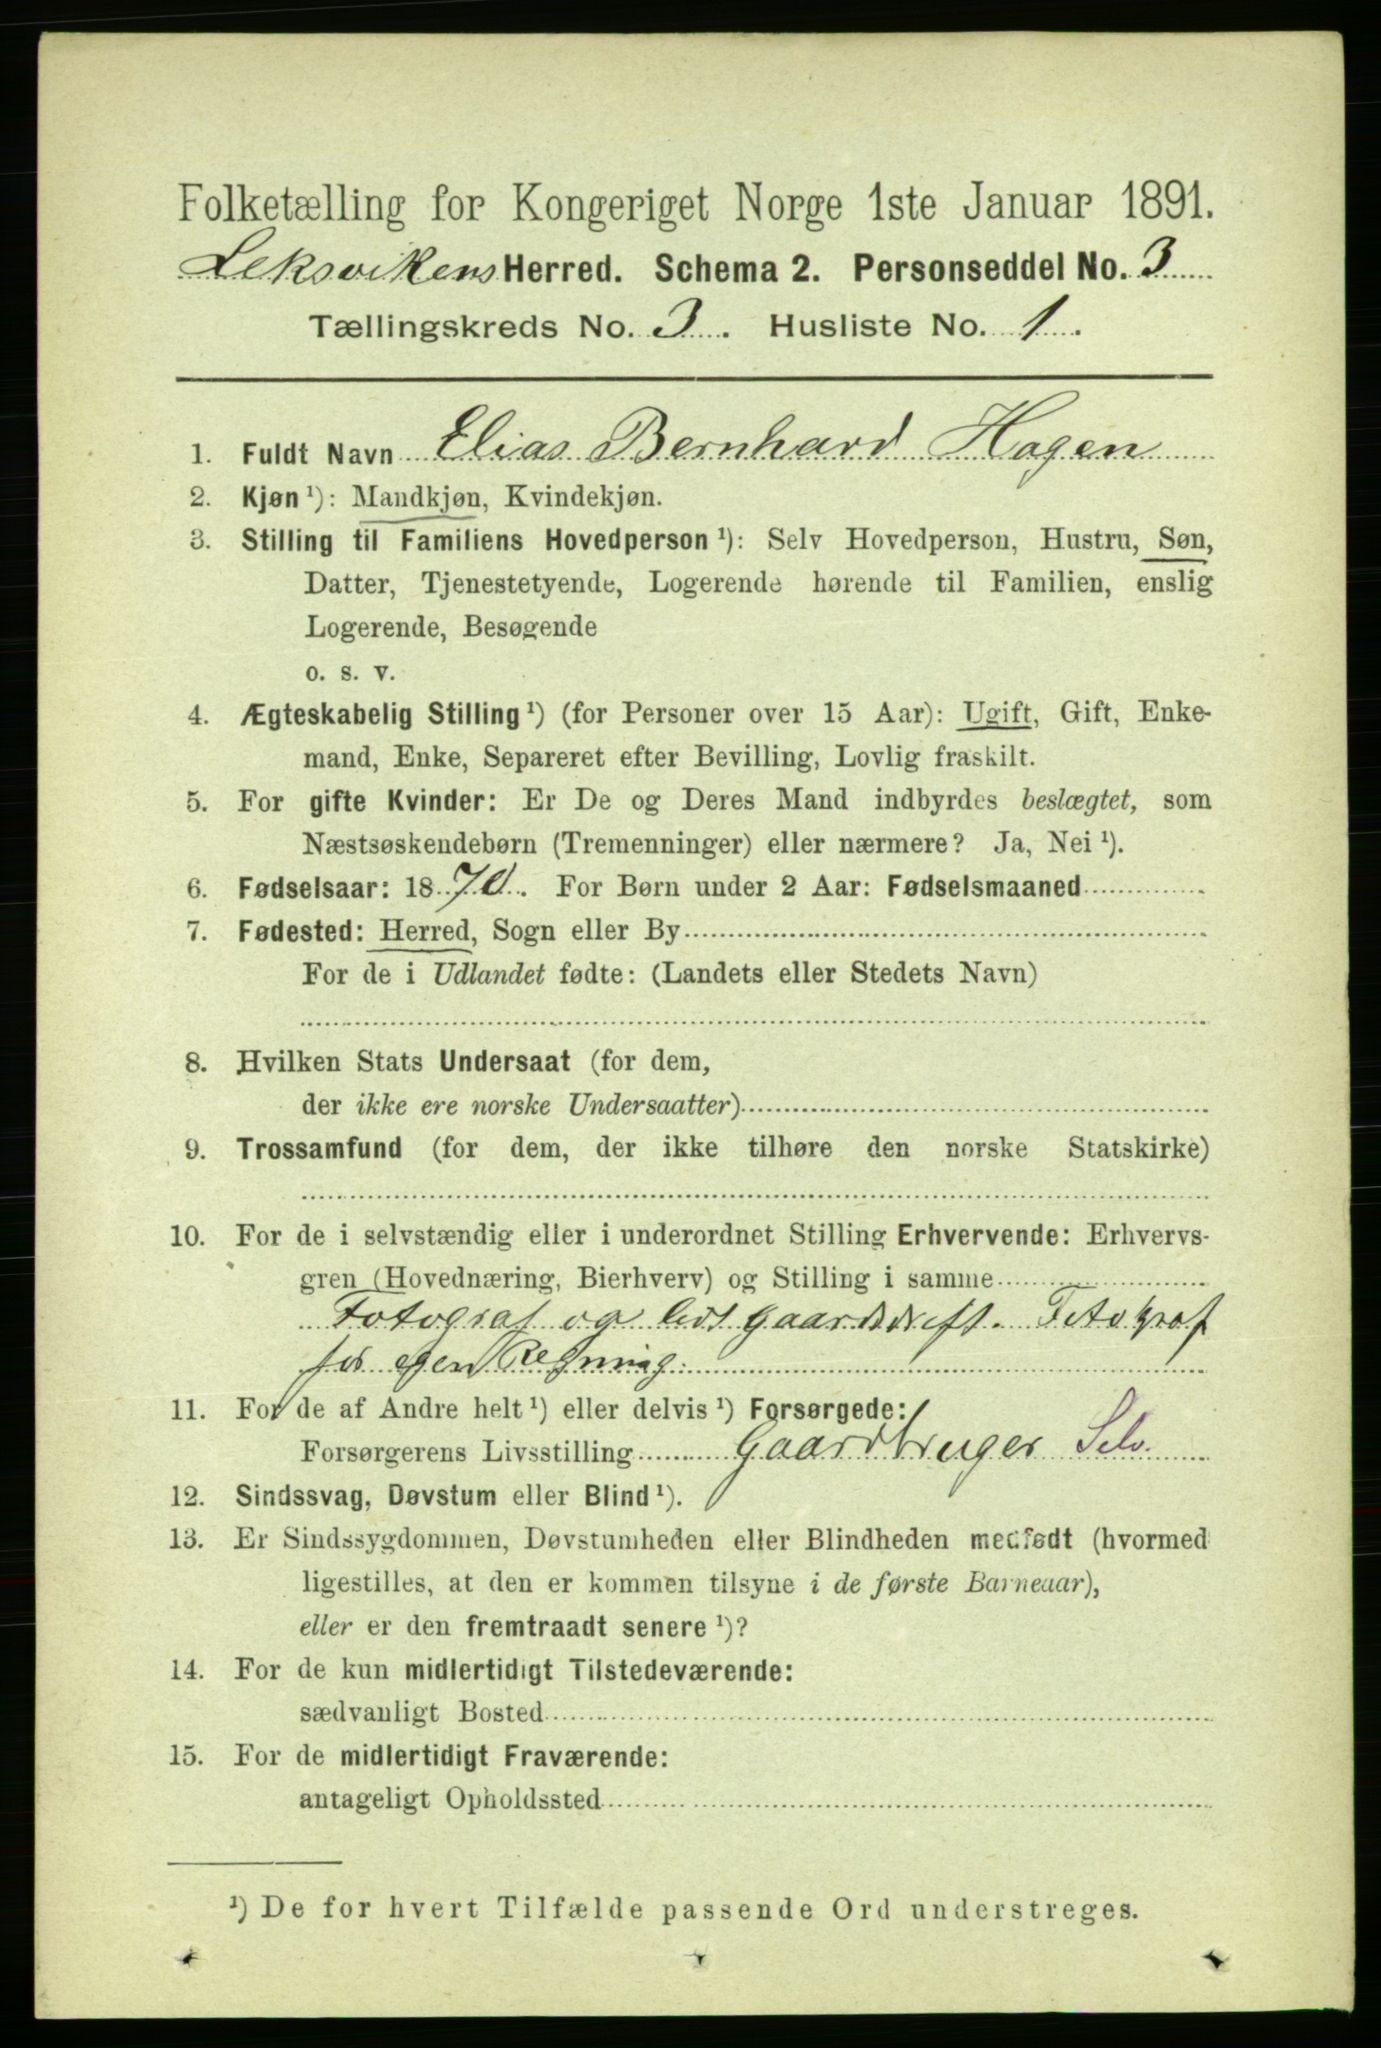 Folketælling for Kongeriget Norge 1ste Januar 1891.
Leksvikens Herred. Schema 2. Personseddel No. 3
Tællingskreds No. 3. Husliste No. 1.
1. Fuldt Navn Elias Bernhard Hagen
2. Kjøn ¹): Mandkjøn, Kvindekjøn.
3. Stilling til Familiens Hovedperson ¹): Selv Hovedperson, Hustru, Søn,
Datter, Tjenestetyende, Logerende hørende til Familien, enslig
Logerende, Besøgende
o. s. v.
4. Ægteskabelig Stilling ¹) (for Personer over 15 Aar): Ugift, Gift, Enke-
mand, Enke, Separeret efter Bevilling, Lovlig fraskilt.
5. For gifte Kvinder: Er De og Deres Mand indbyrdes beslægtet, som
Næstsøskendebørn (Tremenninger) eller nærmere? Ja, Nei ¹).
6. Fødselsaar: 1870. For Børn under 2 Aar: Fødselsmaaned
7. Fødested: Herred, Sogn eller By
For de i Udlandet fødte: (Landets eller Stedets Navn)
8. Hvilken Stats Undersaat (for dem,
der ikke ere norske Undersaatter)
9. Trossamfund (for dem, der ikke tilhøre den norske Statskirke)
10. For de i selvstændig eller i underordnet Stilling Erhvervende: Erhvervs-
gren (Hovednæring, Bierhverv) og Stilling i samme
Fotograf og Gaardsdrift. Fotograf
for egen Regning.
11. For de af Andre helt ¹) eller delvis ¹) Forsørgede:
Forsørgerens Livsstilling Gaardbruger Selv.
12. Sindssvag, Døvstum eller Blind ¹).
13. Er Sindssygdommen, Døvstumheden eller Blindheden medfødt (hvormed
ligestilles, at den er kommen tilsyne i de første Barneaar),
eller er den fremtraadt senere ¹)?
14. For de kun midlertidigt Tilstedeværende:
sædvanligt Bosted
15. For de midlertidigt Fraværende:
antageligt Opholdssted
¹) De for hvert Tilfælde passende Ord understreges.